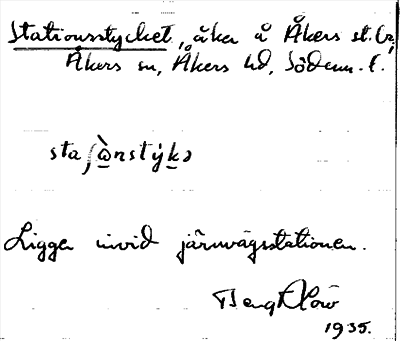 Stationsstycket, åker å Åkers st. Co,
Åkers sn, Åkers hd, Södem. l.
staʃὼnstýkə
Ligger invid järnvägsstationen.
Bengt
1935.